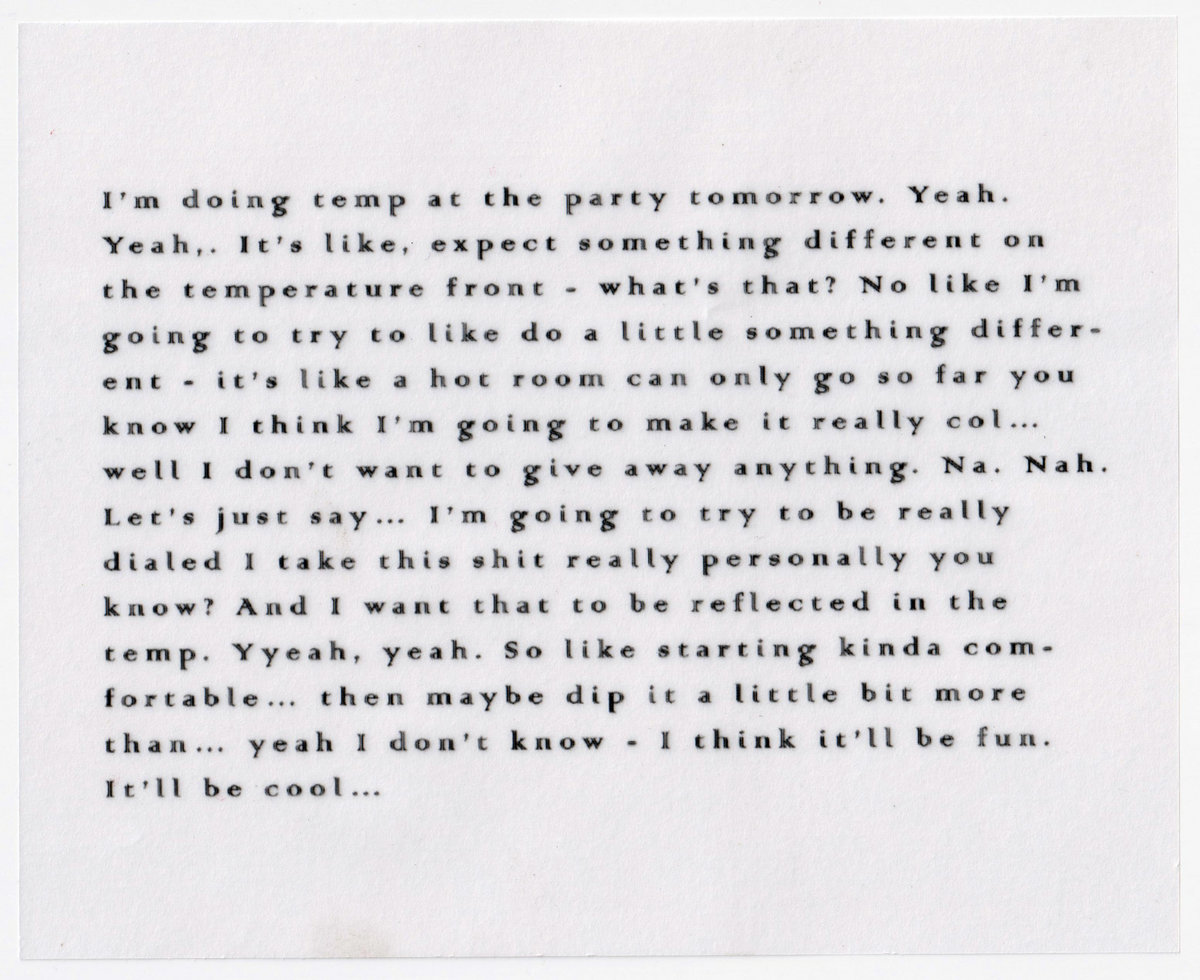 I'm doing temp at the party tomorrow. Yeah.
Yeah,. It's like, expect something different on
the temperature front - what's that? No like I'm
going to try to like do a little something differ-
ent - it's like a hot room can only go so far you
know I think I'm going to make it really col...
well I don't want to give away anything. Na. Nah.
Let's just say... I'm going to try to be really
dialed I take this shit really personally you
know? And I want that to be reflected in the
temp. Yyeah, yeah. So like starting kinda com-
fortable... then maybe dip it a little bit more
than... yeah I don't know - I think it'll be fun.
It'll be cool...